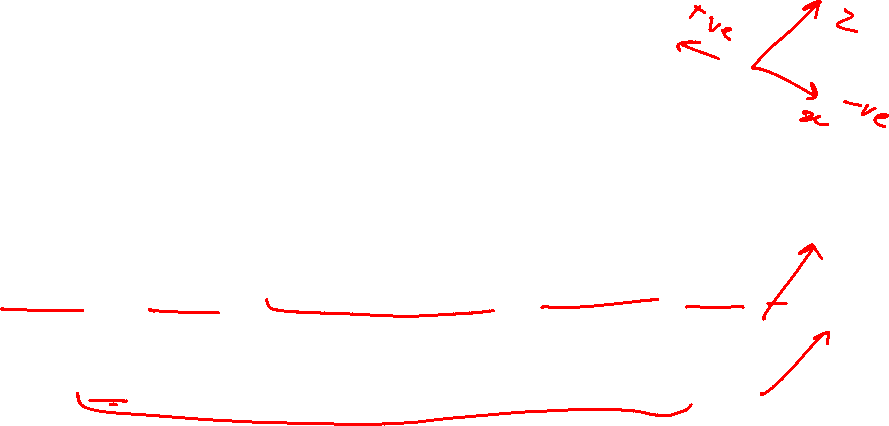 +ve
z
x -ve